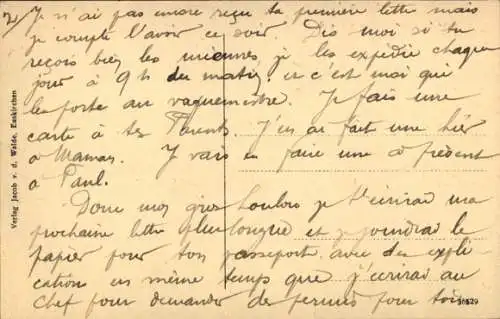 2/ Je n'ai pas encore reçu ta première lettre mais
je compte l'avoir ce soir. Dis moi si tu
reçois bien les miennes, je les expédie chaque
jour à 9h du matin, et c'est moi qui
les porte au vaguemestre. Je fais une
carte à tes Parents. J'en ai fait une hier
à Maman. Je vais en faire une à présent
à Paul.
Donc mon gros loulou je t'écrirai ma
prochaine lettre plus longue et je joindrai le
papier pour ton passeport avec des expli-
cations en même temps que j'écrirai au
chef pour demander des permis pour toi
Verlag Jacob v. d. Walde, Euskirchen